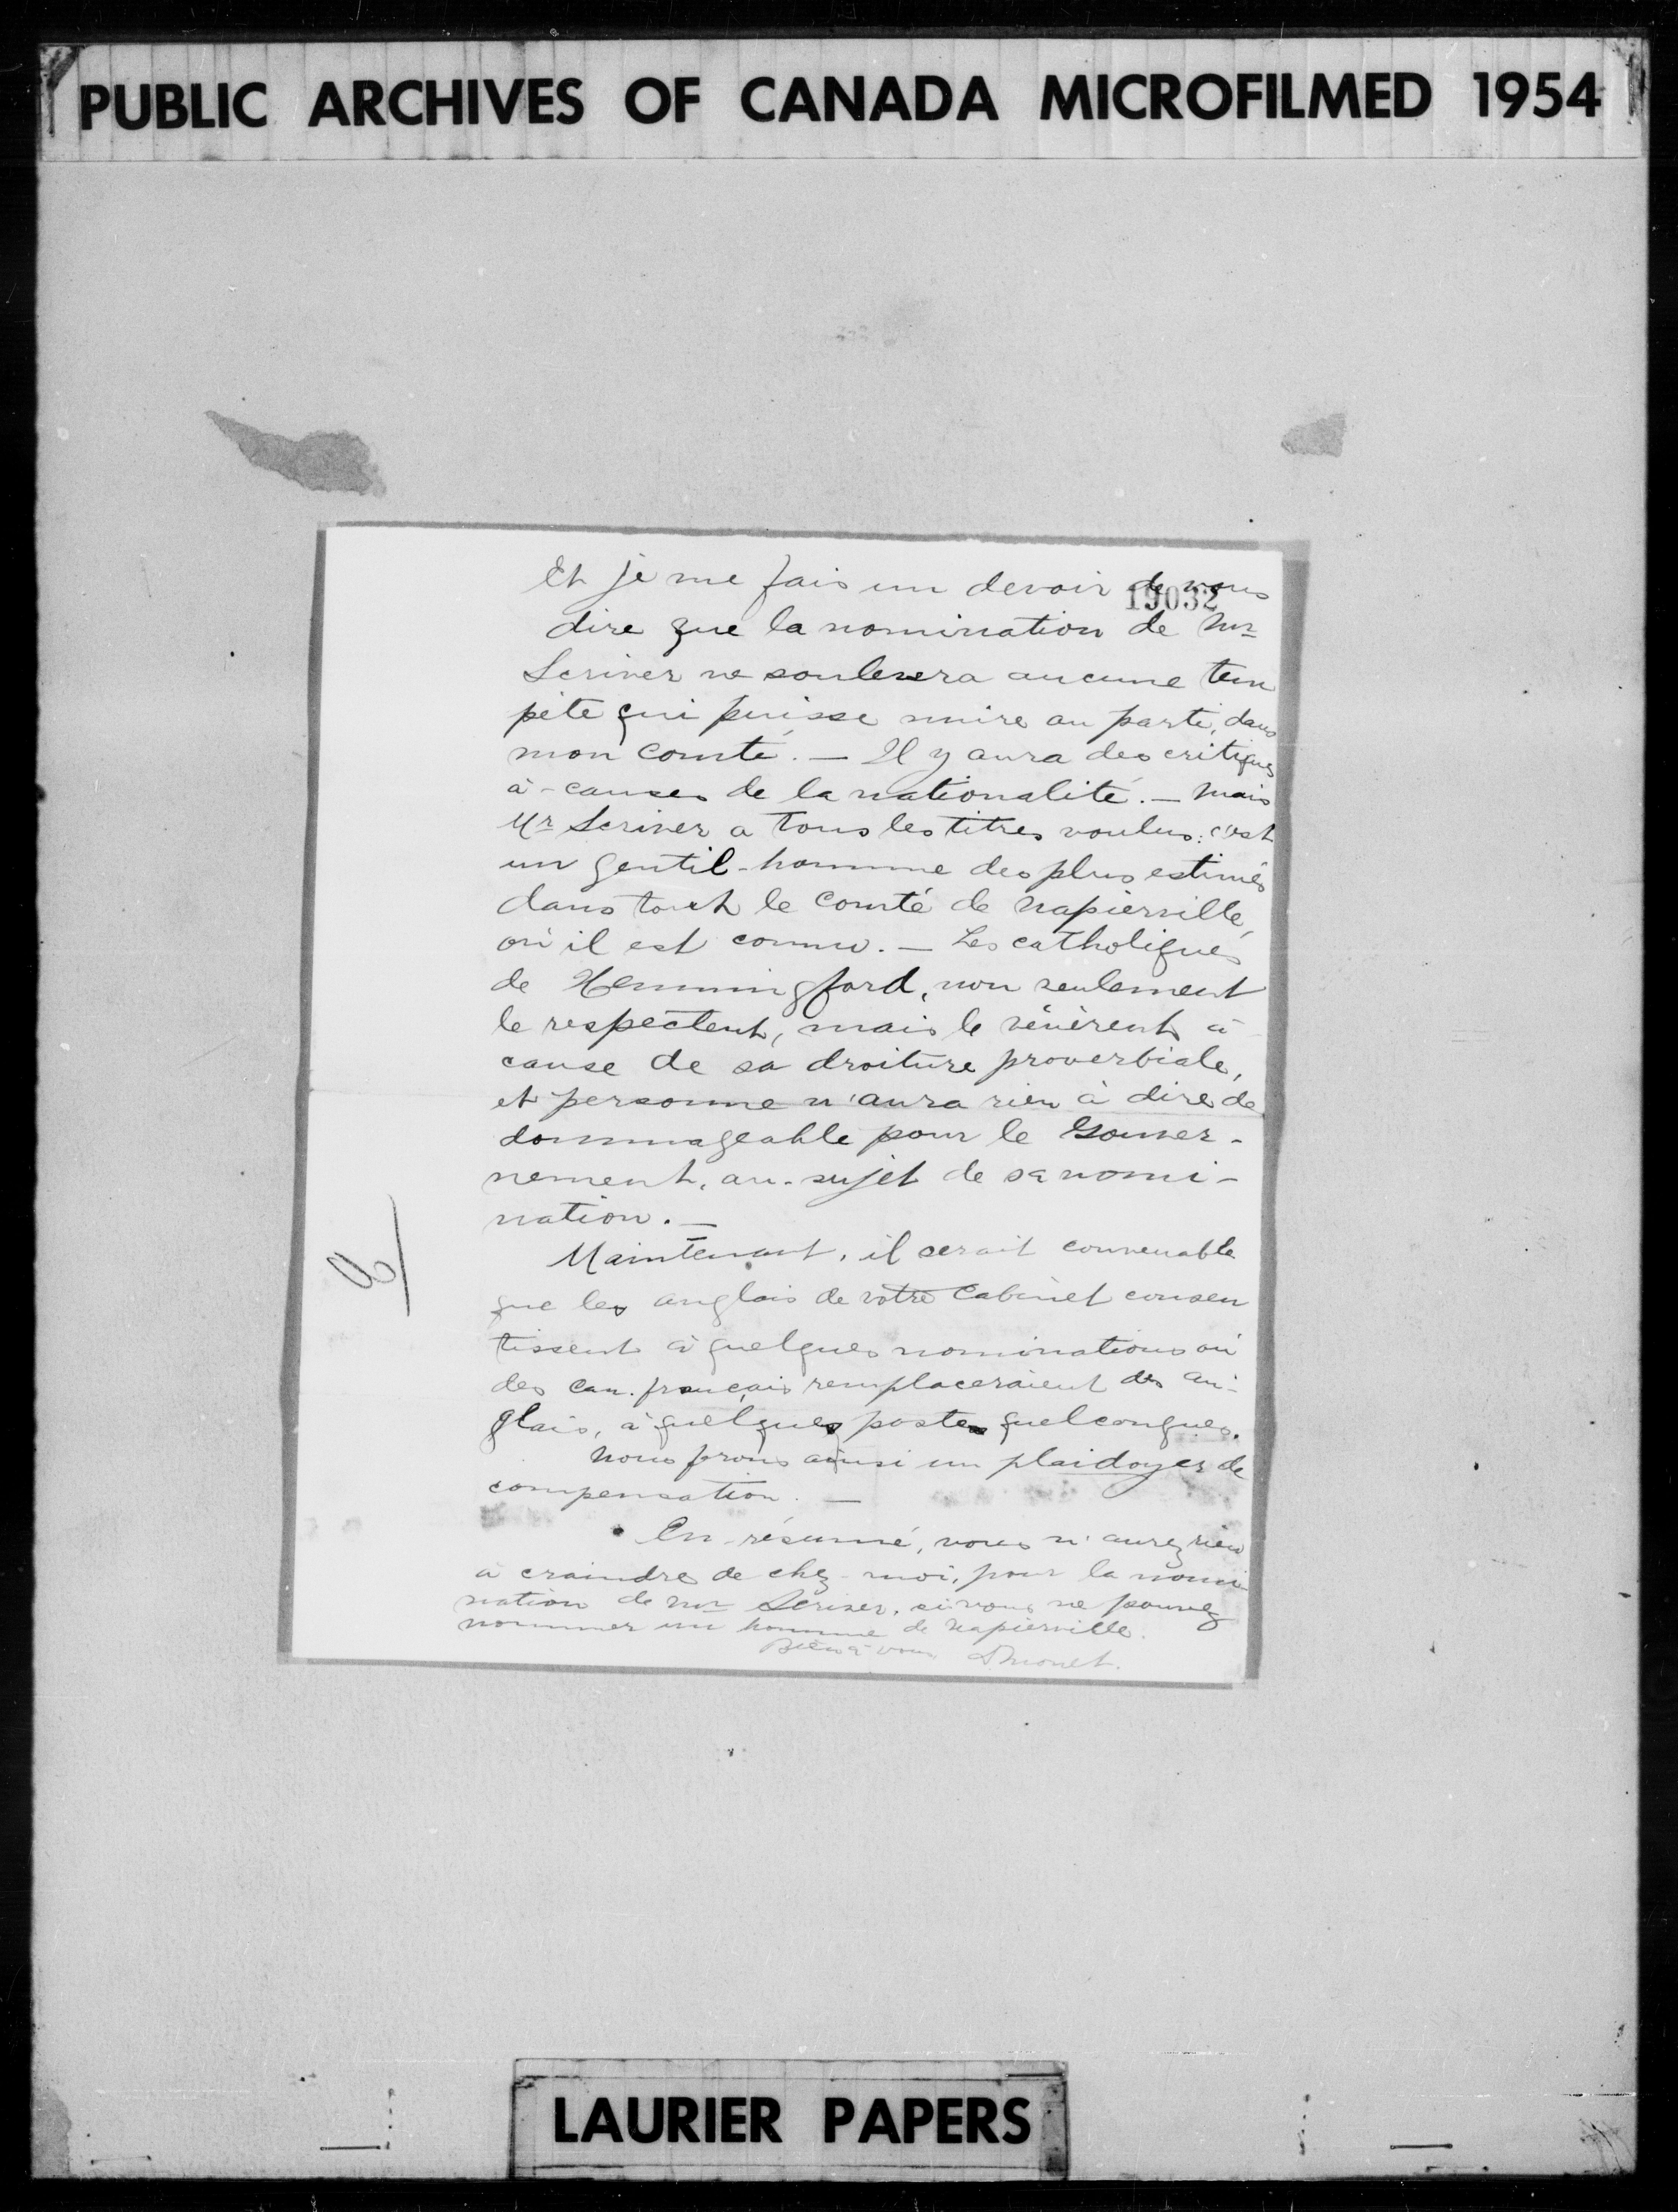 PUBLIC ARCHIVES OF CANADA MICROFILMED 1954
Et je me fais un devoir de vous
19032
dire que la nomination de Mr
Scriver ne soulevera aucune tem
pête qui puisse nuire au parti, dans
mon comté. — Il y aura des critiques
à-causes de la nationalité. — Mais
Mr Scriver a tous les titres voulus: c'est
un gentil-homme des plus estimés
dans tout le Comté de Napierville,
où il est connu. — Les catholiques
de Hemmingford, non seulement
le respectent, mais le vénèrent à
cause de sa droiture proverbiale,
et personne n'aura rien à dire de
dommageable pour le Gouver-
nement, au-sujet de sa nomi-
nation. —
Maintenant, il serait convenable
que les anglais de votre Cabinet consen
tissent à quelques nominations où
des can. français remplaceraient des an-
glais, à quelques postes quelconques.
Nous ferons ainsi un plaidoyer de
compensation. —
En-résumé, vous n'aurez rien
à craindre de chez-moi, pour la nomi
nation de Mr Scriver, si vous ne pouvez
nommer un homme de Napierville.
Bien à vous DMonet.
LAURIER PAPERS